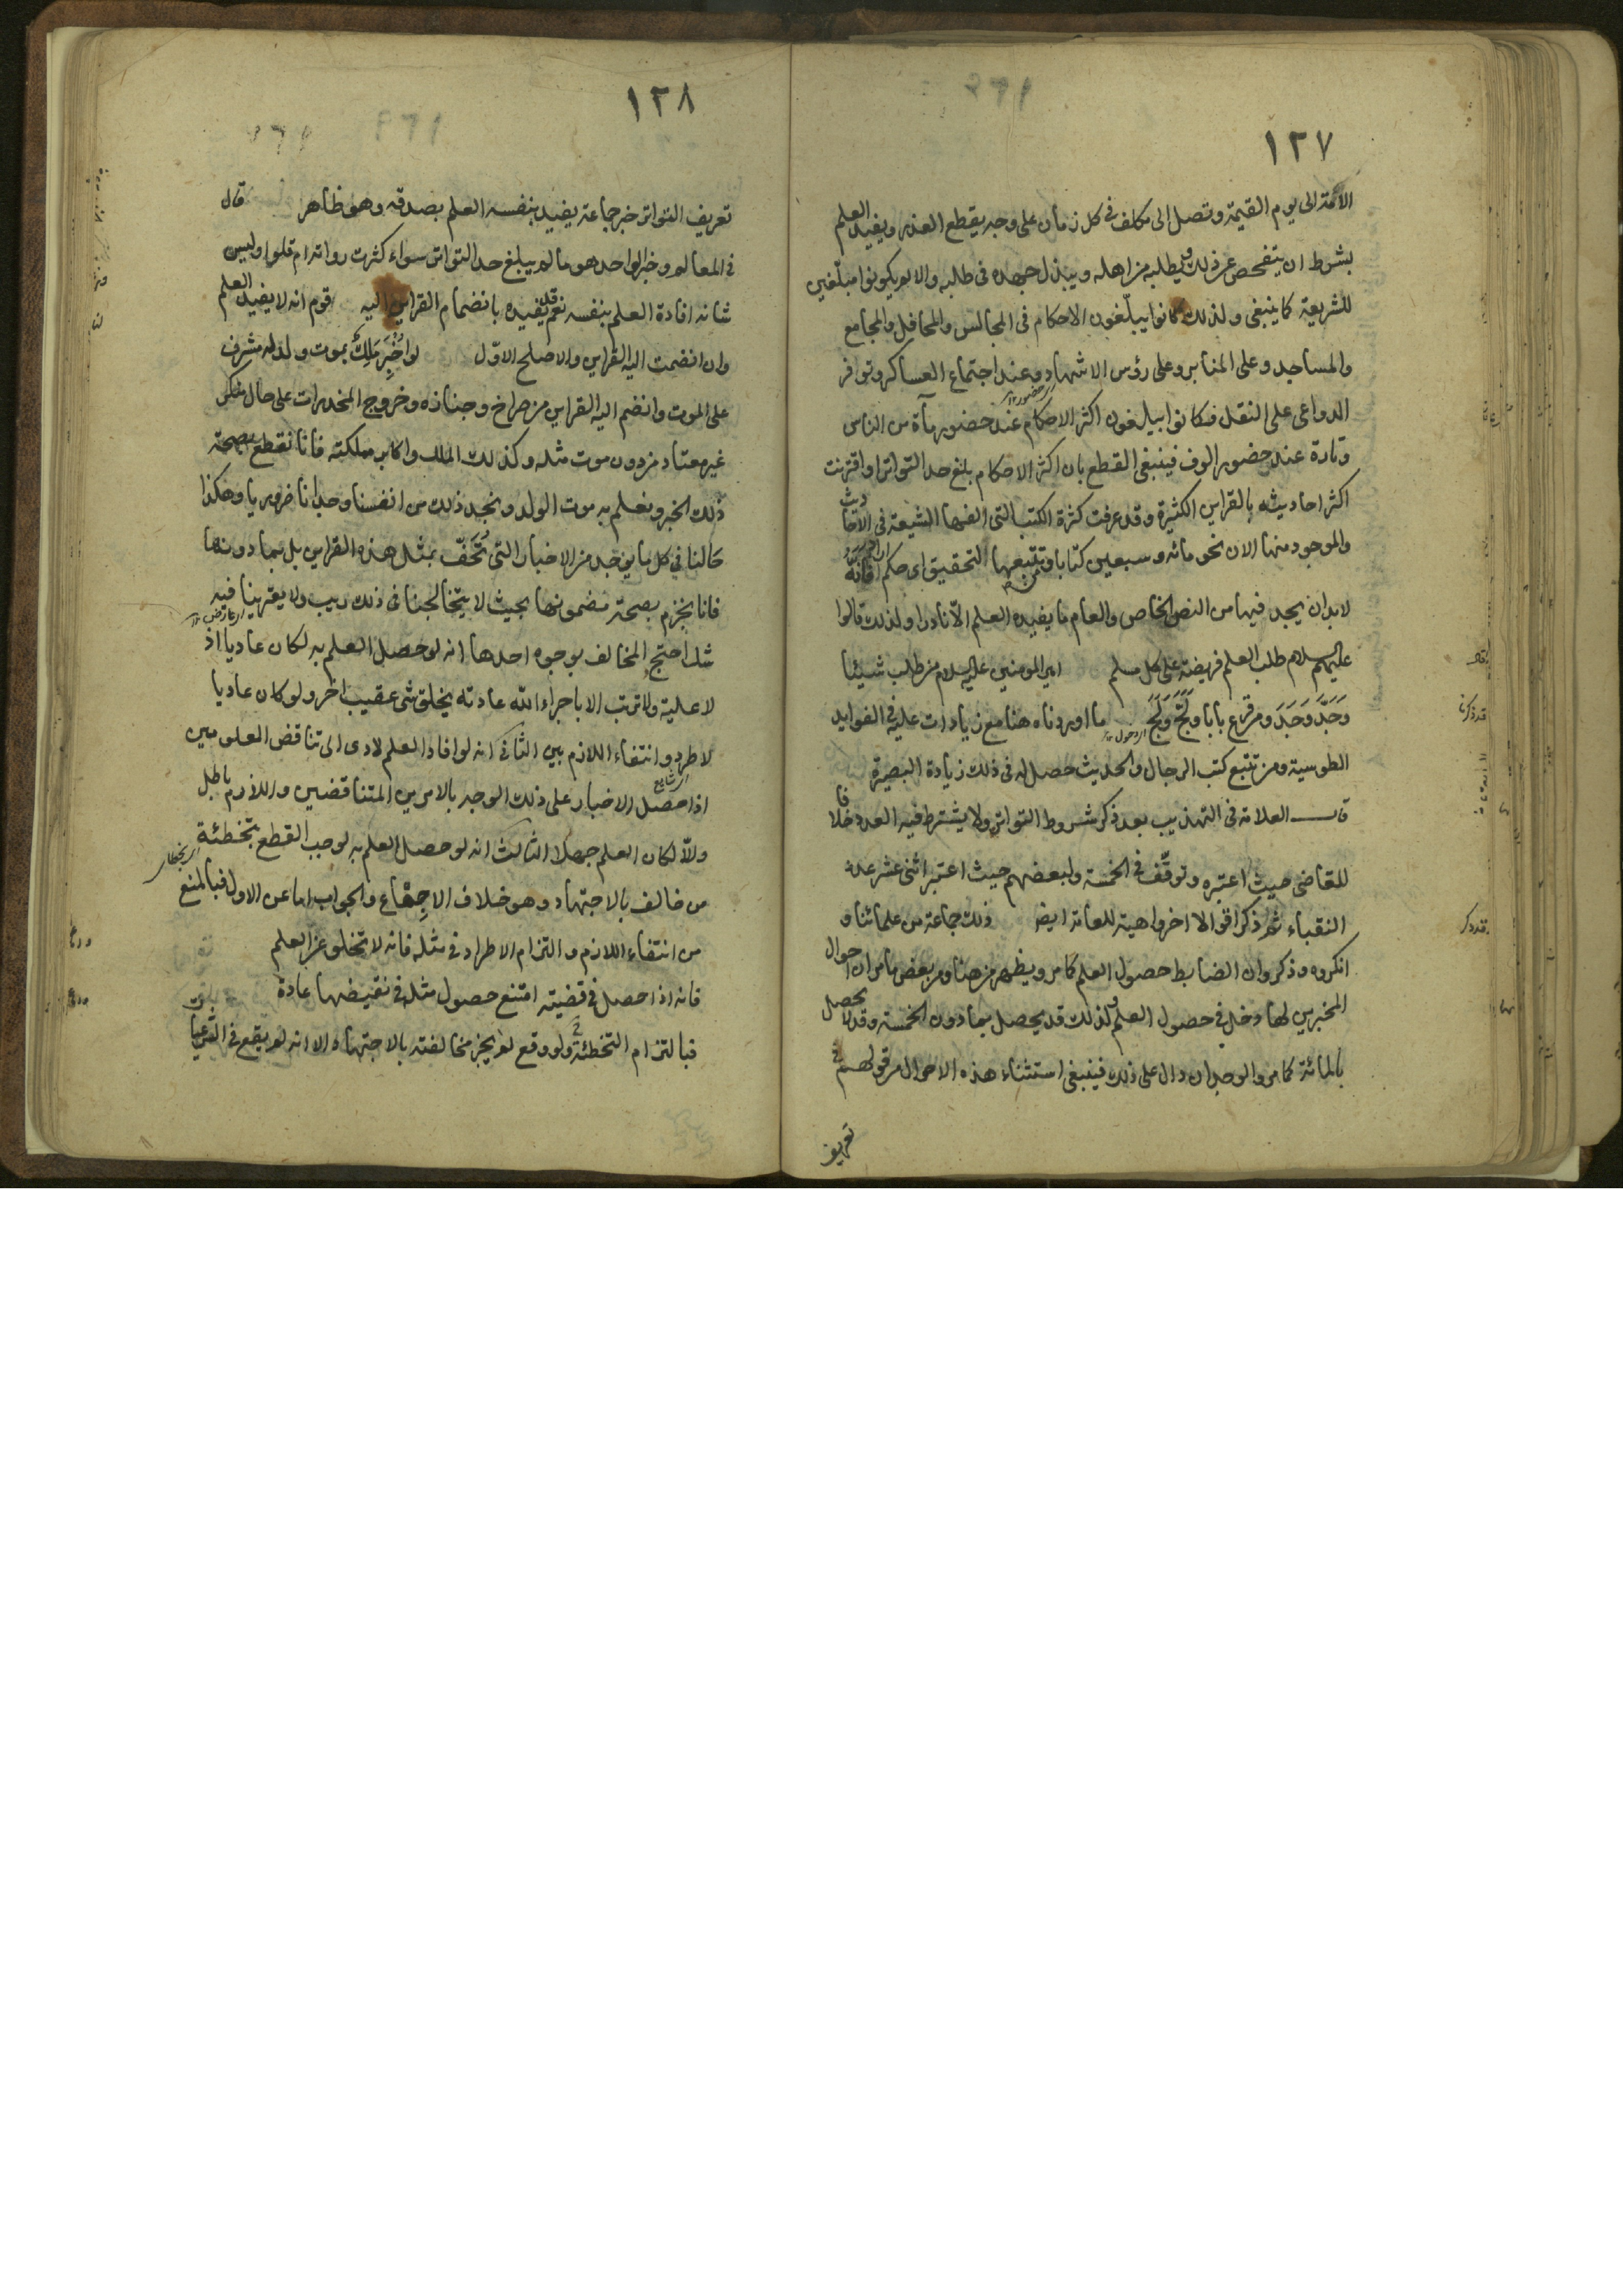 ١٢٧
الائمة الى يوم القيمة وتصل الى مكلف فى كل زمان على وجه يقطع العذر ويفيد العلم
بشرط ان يتفحص عن ذلك ويطلبه من اهله ويبذل جهده فى طلبه والا لم يكونوا مبلّغين
للشريعة كما ينبغى ولذلك كانوا يبلّغون الاحكام فى المجالس والمحافل والمجامع
والمساجد وعلى المنابر وعلى رؤس الاشهاد وعند اجتماع العساكر وتوافر
الدواعى على النقل فكانوا يبلغون اكثر الاحكام عند حضور مأة من الناس
وتارة عند حضور الوف فينبغى القطع بان اكثر الاحكام بلغ حد التواتر او اقترنت
اكثر احاديثه بالقراين الكثيرة وقد عرفت كثرة الكتب التى الفها الشيعة فى الاحاديث
والموجود منها الان نحو مائه وسبعين كتابا وتتبعها التحقيق اى حكم فانه
لابد ان يجد فيها من النص الخاص والعام ما يفيده العلم الّا نادرا ولذلك قالوا
عليهم السلام طلب العلم فريضة على كل مسلم امير المومنين عليه السلام من طلب شيئا
وَجَدَّ وَجَدَ ومن قرع بابا وَلَجَّ وَلَجَ ما اوردناه هنا مع زيادات عليه فى الفوايد
الطوسية ومن تتبع كتب الرجال والحديث حصل له فى ذلك زيادة البصيرة
قال العلامة فى التهذيب بعد ذكر شروط التواتر ولا يشترط فيه العدد خلافا
للقاضى حيث اعتبره وتوقّف فى الخمسة ولبعضهم حيث اعتبر اثنى عشر عدة
النقباء ثم ذكر اقوالا اخر واهية للعامة ايضا ذلك جماعة من علمائنا و
انكروه وذكروا ان الضابط حصول العلم كما مر ويظهر من هنا ومن بعض ما مر ان احوال
المخبرين لها دخل فى حصول العلم ولذلك قد يحصل بما دون الخمسة وقد لا يحصل
بالمائة كما مر والوجدان دال على ذلك فينبغى استثناء هذه الاحوال من قولهم فى
تعريف
١٢٨
تعريف التواتر خبر جماعة يفيد بنفسه العلم بصدقه وهو ظاهر قال
فى المعالم وخبر الواحد هو ما لم يبلغ حد التواتر سواء كثرت رواته ام قلوا وليس
شانه افادة العلم بنفسه نعم قد يفيده بانضمام القراين اليه قوم انه لا يفيد العلم
وان انضمت اليه القراين والاصلح الاوّل لو اُخْبِرَ مَلِكٌ بموت ولد له مشرف
على الموت وانضم اليه القراين من صراخ وجنازه وخروج المخدرات على حال منكر
غير معتاد من دون موت مثله وكذلك الملك واكابر مملكته فانا نقطع بصحة
ذلك الخبر ونعلم به موت الولد ونجد ذلك من انفسنا وجدانا ضروريا وهكذا
حالنا فى كل ما يوجد من الاخبار التى تُحَفّ بمثل هذه القراين بل بما دونها
فانا نجزم بصحة مضمونها بحيث لا يتخالجنا فى ذلك ريب ولا يعترينا فيه
شك احتج المخالف بوجوه احدها انه لو حصل العلم به لكان عاديا اذ
لا علية ولا ترتب الا باجراء الله عادته بخلق شئ عقيب اخر ولو كان عاديا
لاطرد وانتفاء اللازم بين الثانى انه لو افاد العلم لادى الى تناقض المعلومين
اذا حصل الاخبار على ذلك الوجه بالامرين المتناقضين واللازم باطل
والّا لكان العلم جهلا الثالث انه لو حصل العلم به لوجب القطع بتخطئة
من خالف بالاجتهاد وهو خلاف الاجماع والجواب اما عن الاول فبالمنع
من انتفاء اللازم والتزام الاطراد فى مثله فانه لا تخلو عن العلم
فانه اذا حصل فى قضية امتنع حصول مثله فى نقيضها عادة
فبالتزام التخطئة ولو وقع لم يجز مخالفته بالاجتهاد الا انه لم يقع فى الشرعيات